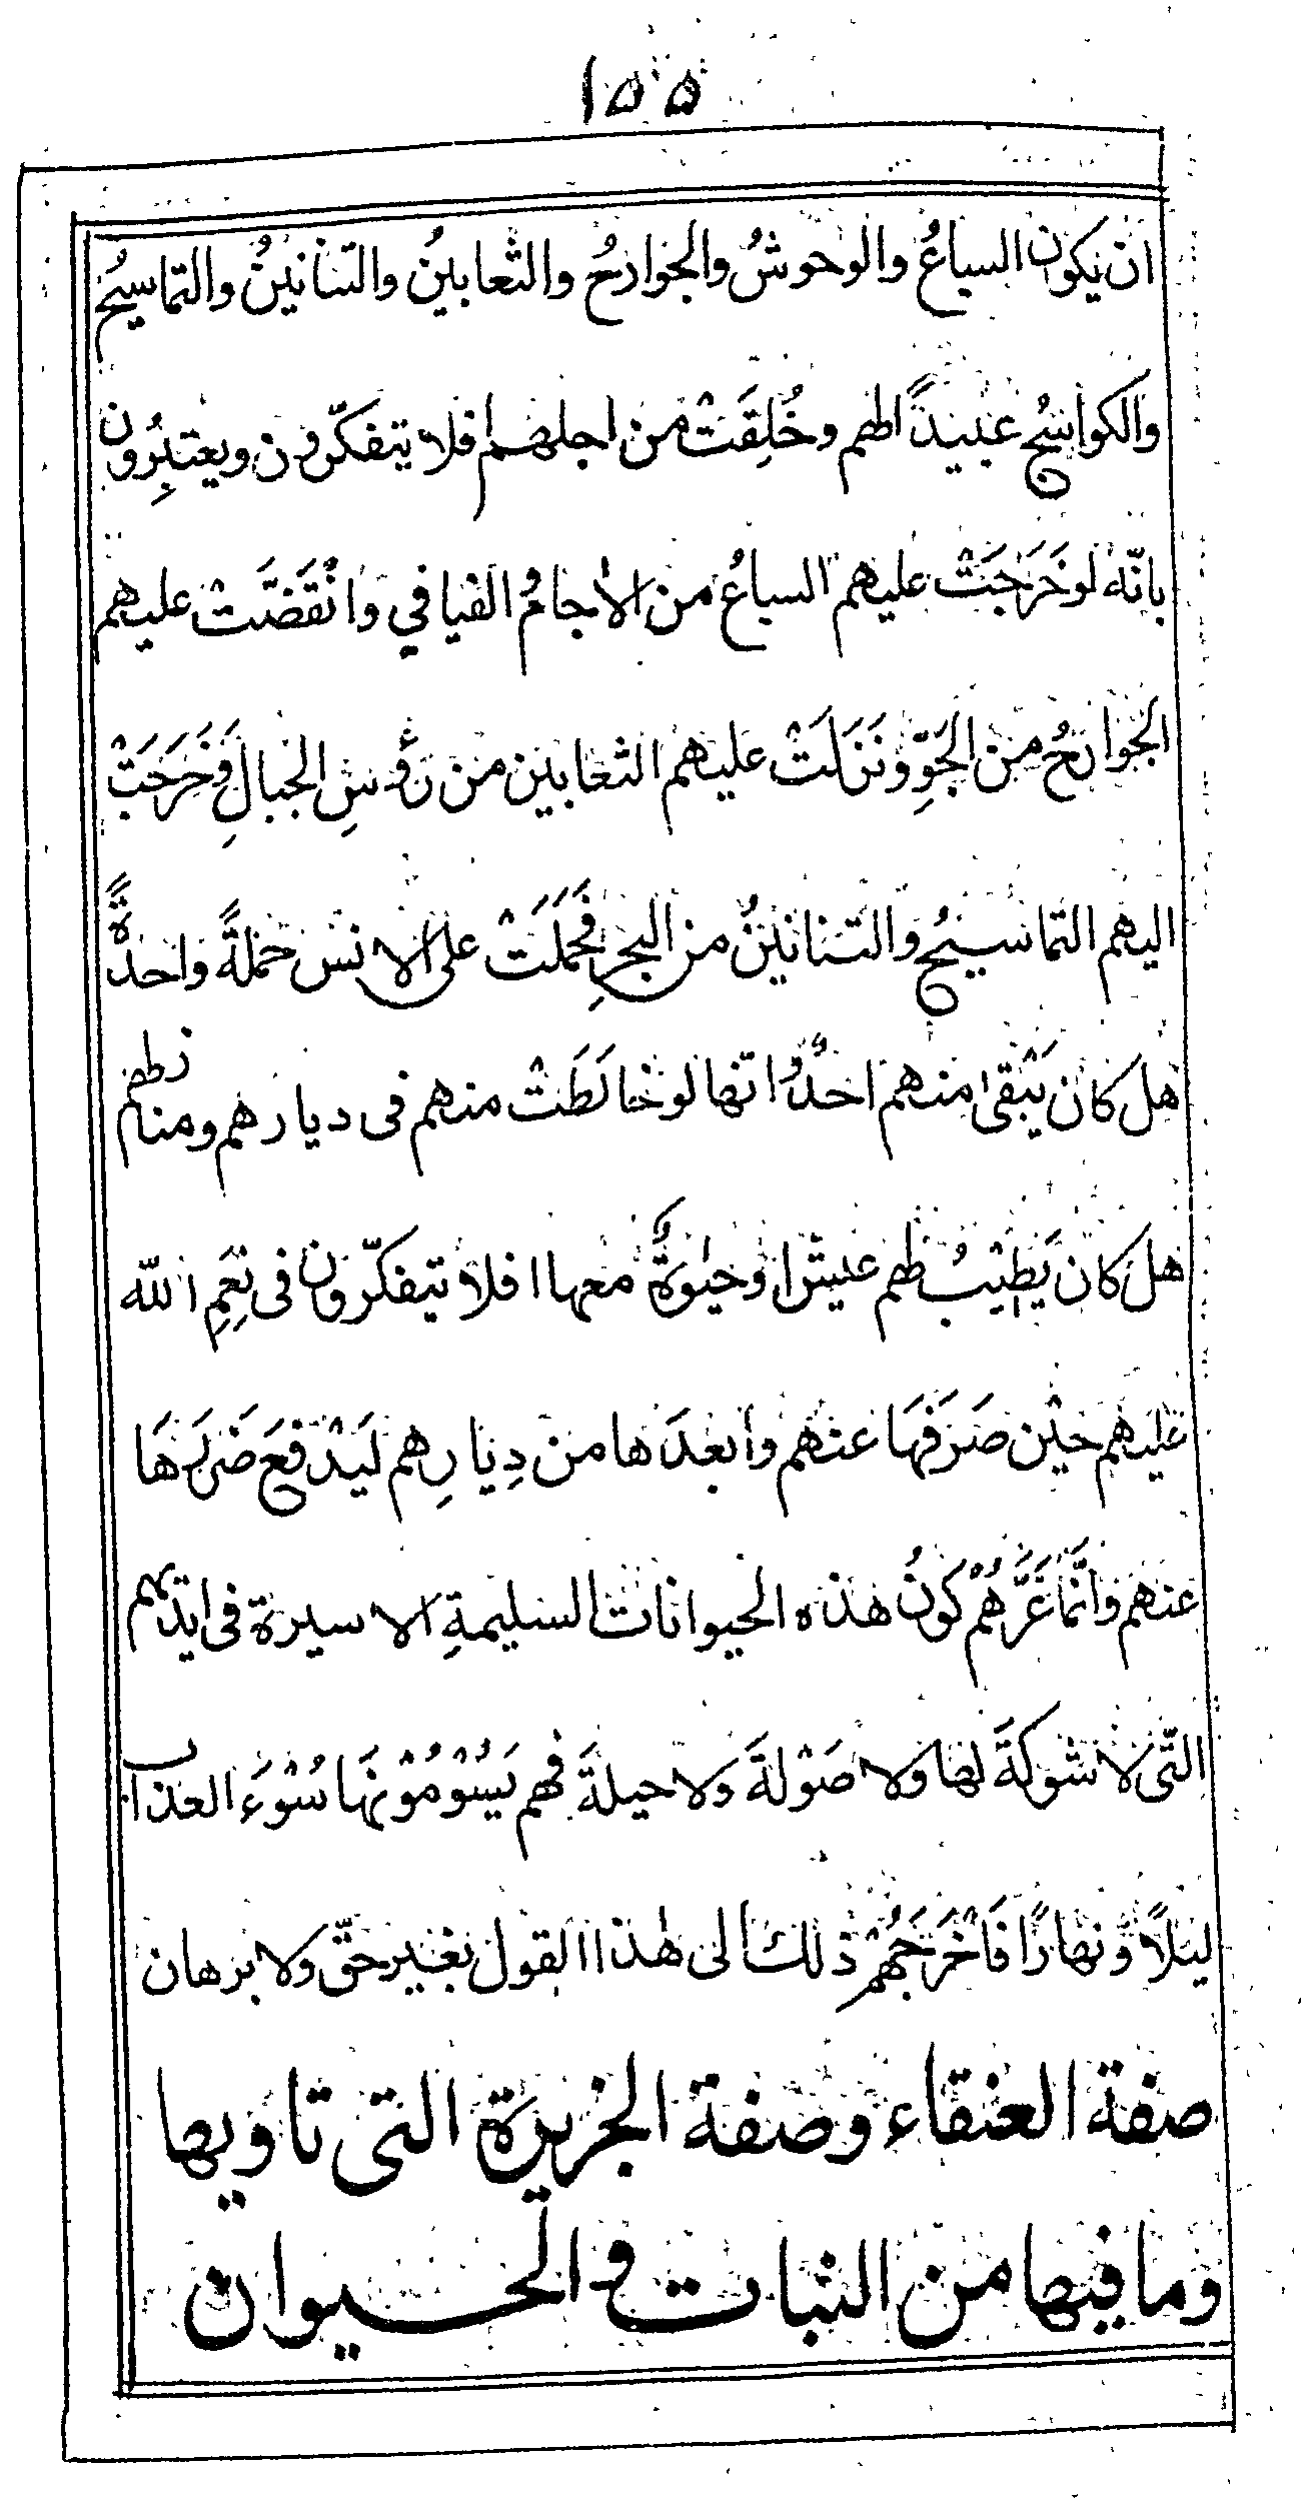 ١٥٥
ان يكون السباعُ والوحوشُ والجوارحُ والثعابينُ والتنانينُ والتماسيحُ
والكواسجُ عبيداً لهم وخُلِقَتْ من اجلهم افلا يتفكّرون ويعتبِرُون
بانّه لو خَرَجَتْ عليهم السباعُ من الاجام والفيافي وانْقَضَّتْ عليهم
الجوارحُ من الجَوِّ ونَزَلَتْ عليهم الثعابين من رؤسِ الجبالِ وخَرَجَتْ
اليهم التماسيحُ والتنانينُ من البحرِ فحَمَلَتْ على الانس حملةً واحدةً
هل كان يَبْقىٰ منهم احدٌ وانها لو خالَطَتْ منهم فى ديارهم ومنازلهم
هل كان يَطِيْبُ لهم عيش او حيٰوةٌ معها افلا يتفكّرون فى نِعَمِ الله
عليهم حيْن صَرَفَهَا عنهم وابعدَها من دِيارِهم ليَدْفعَ ضَرَرَهَا
عنهم وانّما غَرَّهُمْ كونُ هذه الحيوانات السليمةِ الاسيرة فى ايديهم
التّى لا شوكةَ لها ولا صَوْلةَ ولا حيلةَ فهم يَسُوْمُوْنَهَا سُوْءَ العذاب
ليلًا ونهارًا فَاَخْرَجَهُمْ ذلك الى هٰذا القول بغير حقّ ولا برهان
صفة العنقاء وصفة الجزيرة التى تاويها
وما فيها من النبات والحيوان